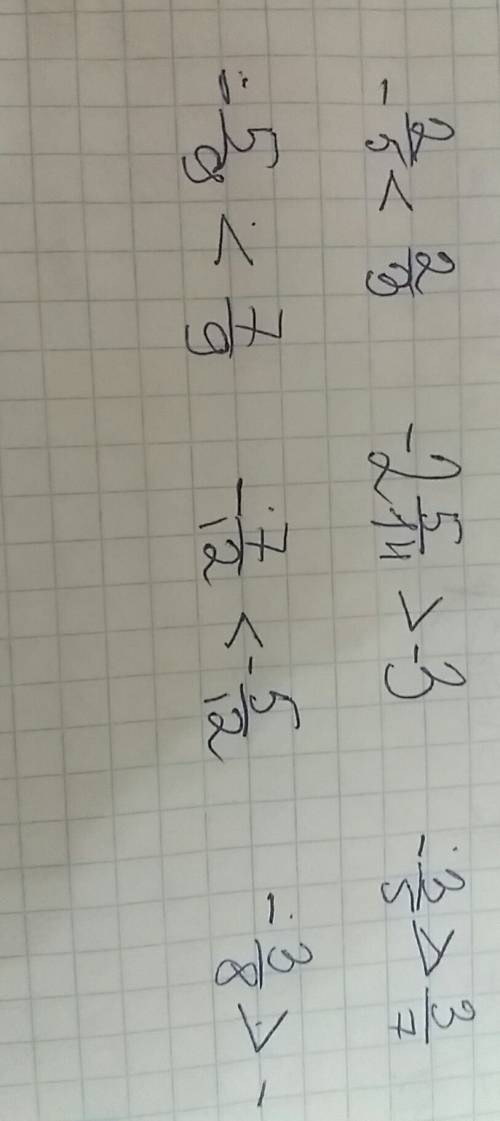 -2/5 < 2/9 -2 5/14 > -3 -3/5 > 3/7
-5/9 < 7/9 -7/12 < -5/12 -3/8 > -